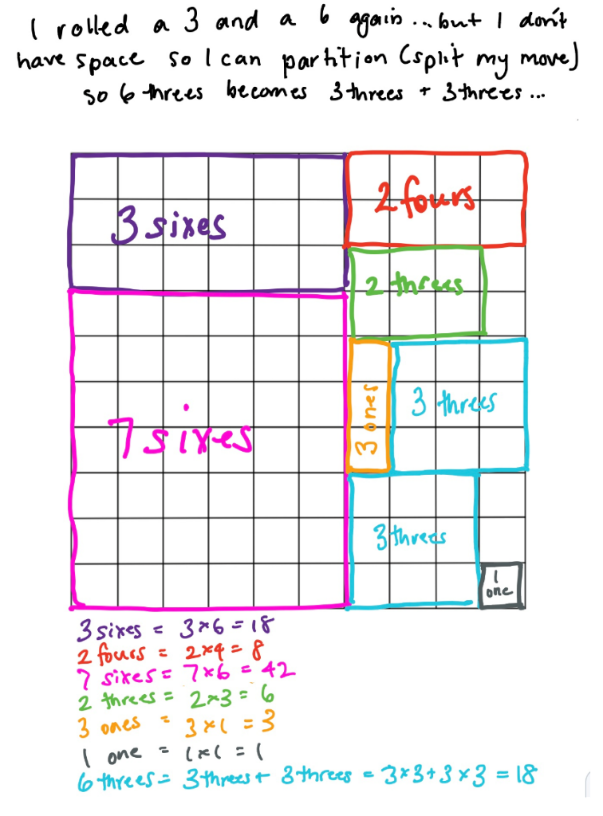 I rolled a 3 and a 6 again... but I don't
have space so I can partition (split my move)
so 6 threes becomes 3 threes + 3 threes ...
3 sixes
2 fours
2 threes
3 ones
3 threes
7 sixes
3 threes
1
one
3 sixes = 3×6 = 18
2 fours = 2×4 = 8
7 sixes = 7×6 = 42
2 threes = 2×3 = 6
3 ones = 3×1 = 3
1 one = 1×1 = 1
6 threes = 3 threes + 3 threes = 3×3 + 3×3 = 18